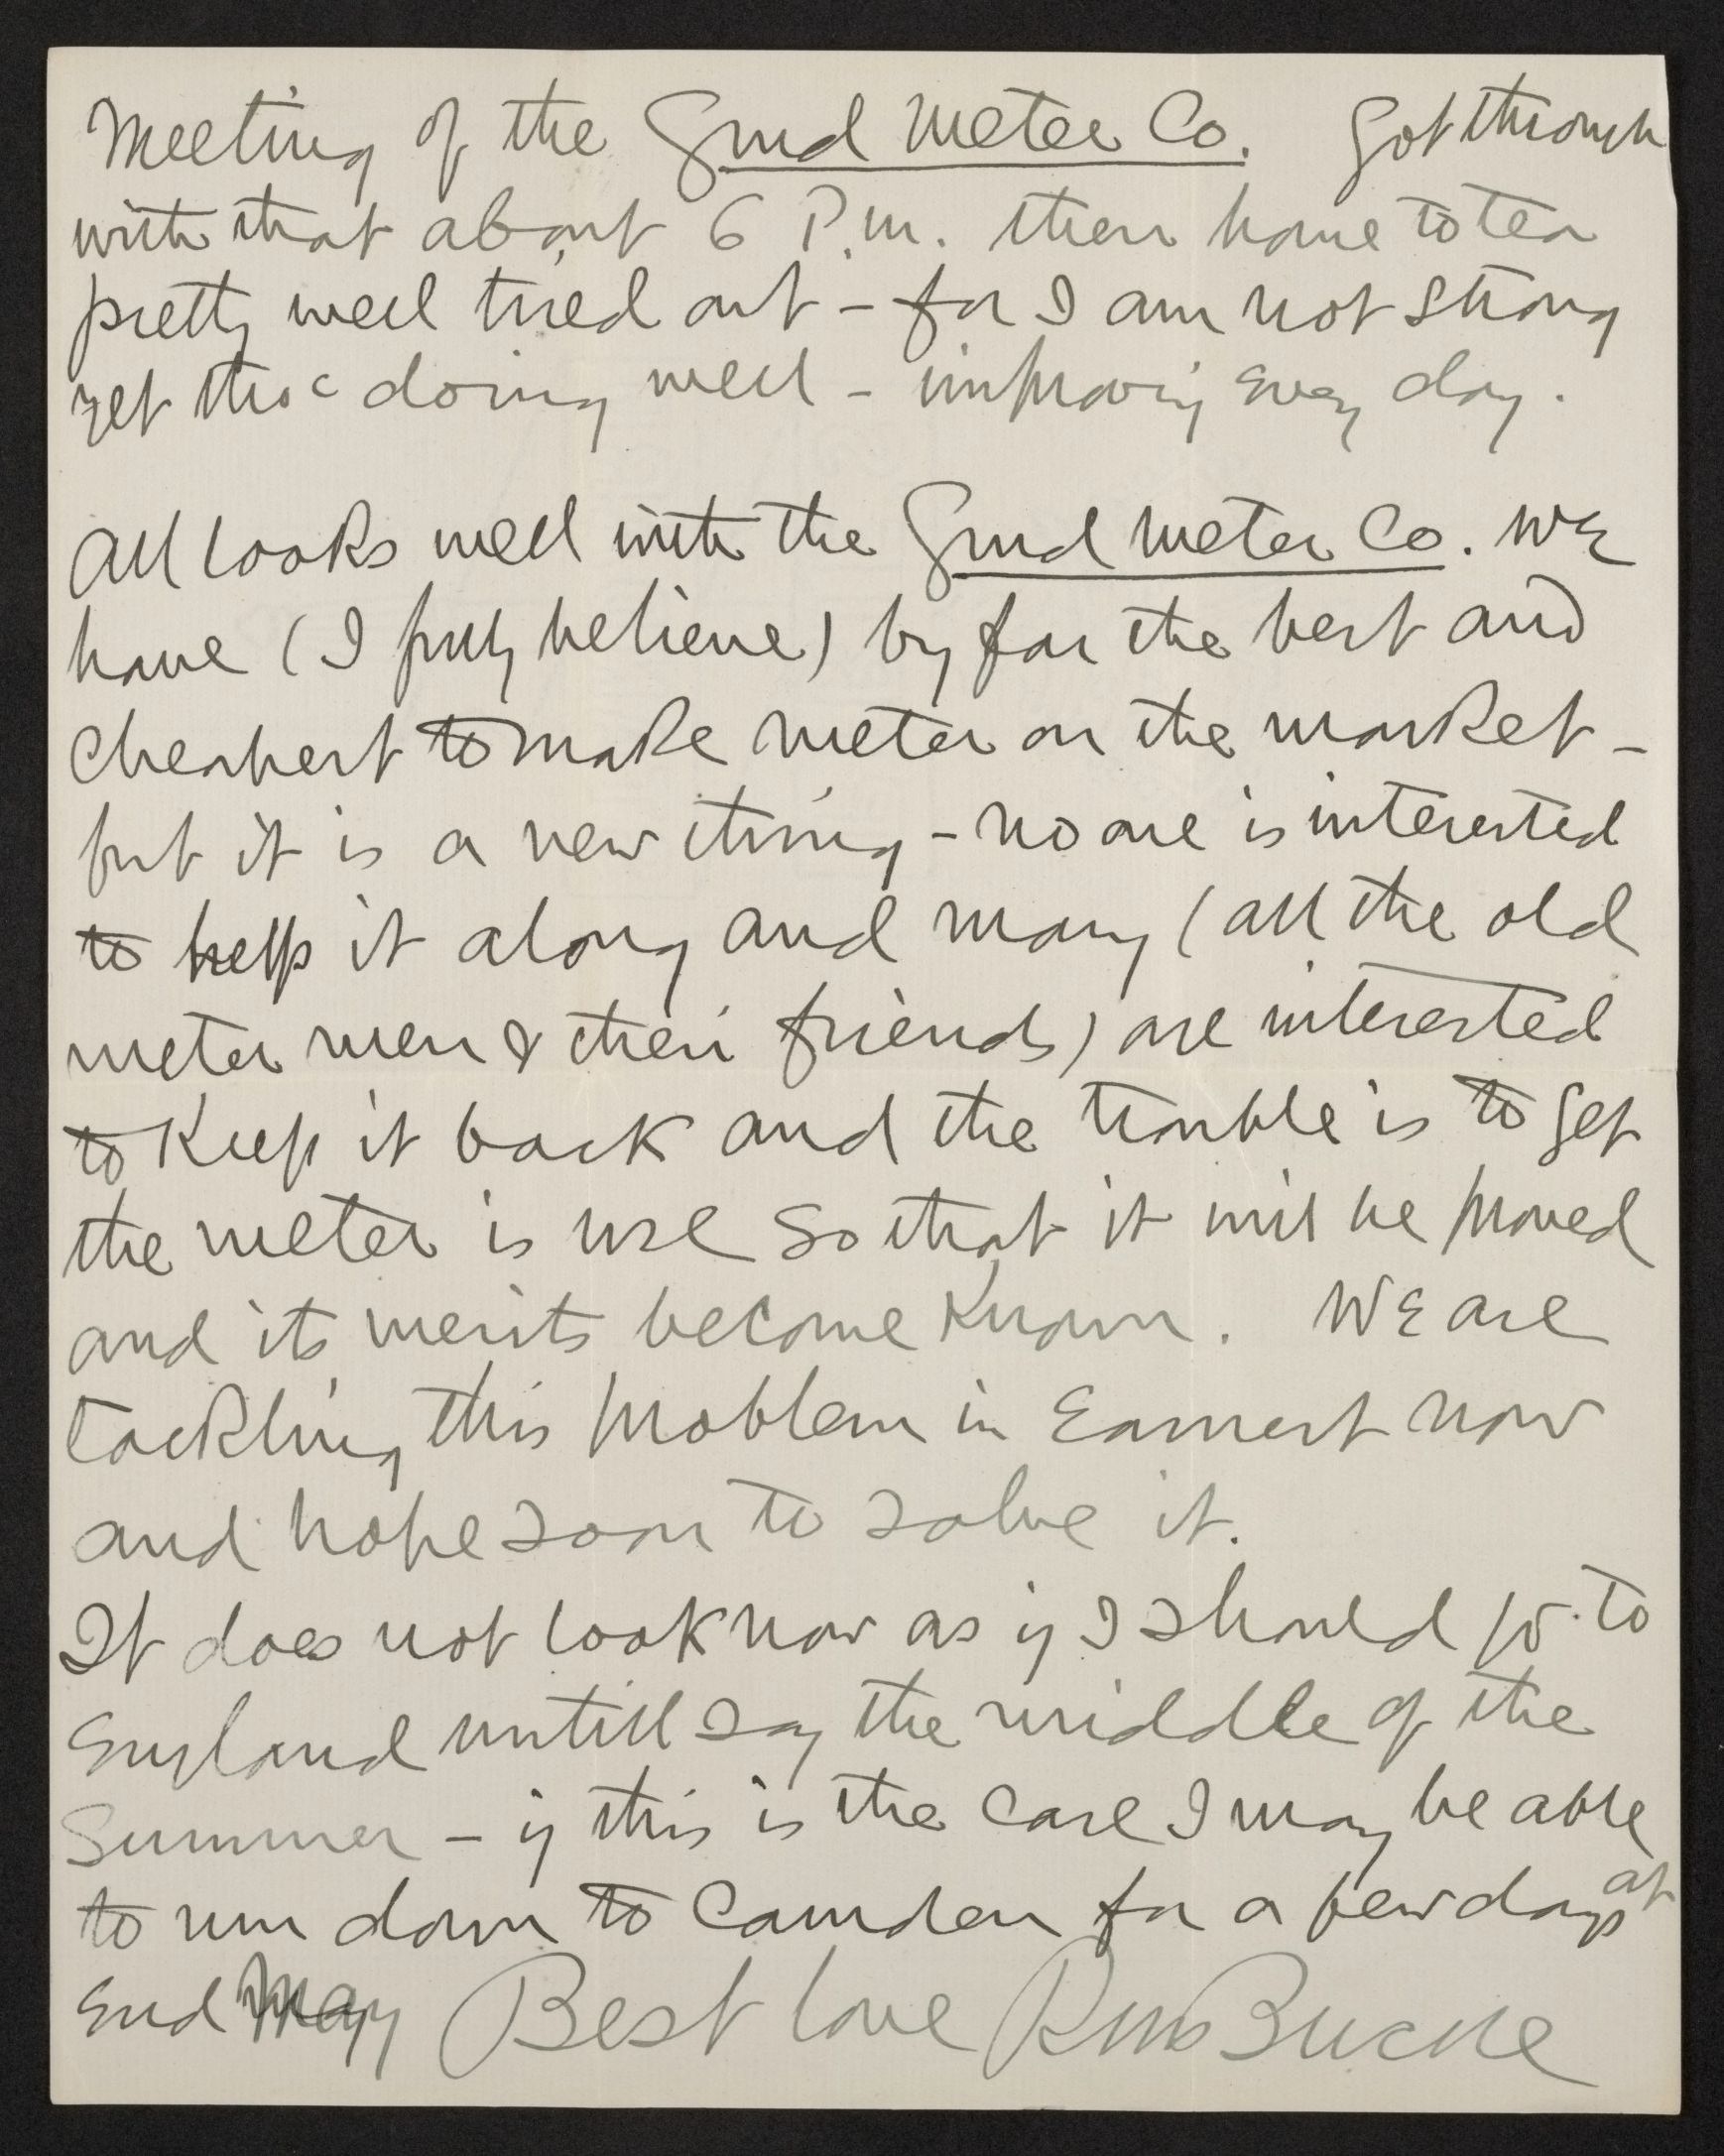 Meeting of the Gurd Meter Co. Got through
with that about 6 P.M. then home to tea
pretty well tired out – for I am not strong
yet tho' doing well – improving every day.
All looks well with the Gurd Meter Co. We
have (I fully believe) by far the best and
cheapest to make meter on the market –
but it is a new thing – no one is interested
to help it along and many (all the old
meter men & their friends) are interested
to keep it back and the trouble is to get
the meter is use so that it will be proved
and its merits become known. We are
tackling this problem in earnest now
and hope soon to solve it.
It does not look now as if I should go to
England untill say the middle of the
Summer – if this is the case I may be able
to run down to Camden for a few days at
end May Best love RM Bucke